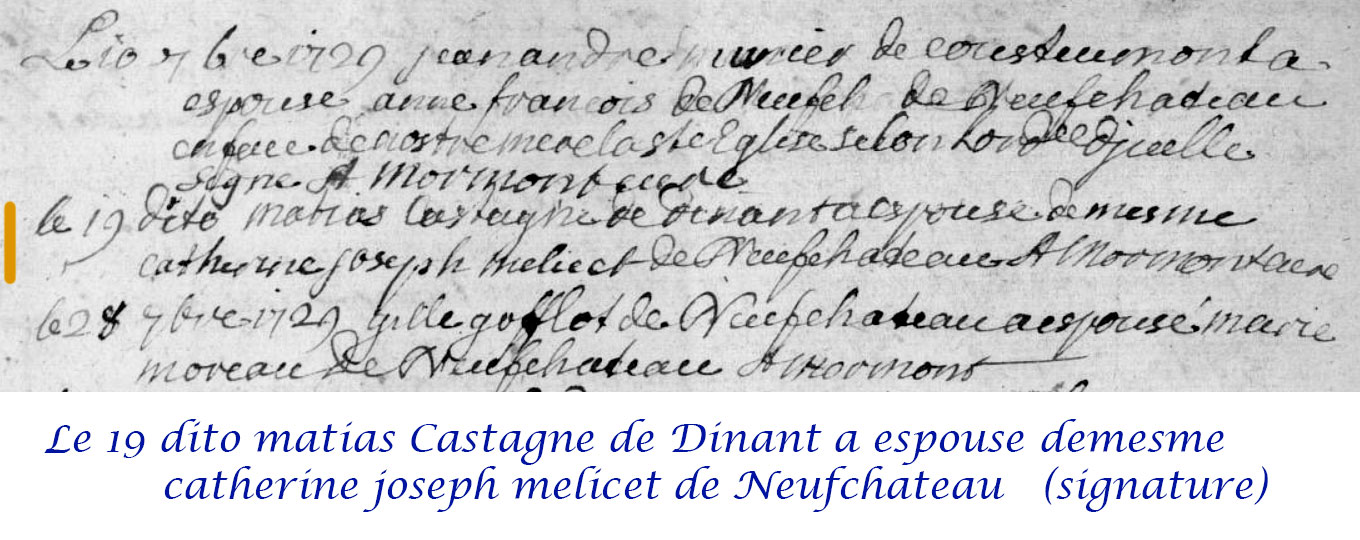 Le 10 7bre 1729 jean andre de coustumont a
espouse anne francois de Neufch de Neufchateau
en face de nostre mere la ste Eglise selon Lordre djcelle
signe A Mormont cure
le 19 dito matias Castagne de Dinant a espouse demesme
catherine joseph melicet de Neufchateau A Mormont cure
le 28 7bre 1729 gille gofflot de Neufchateau a espousé marie
moreau de Neufchateau A Mormont
Le 19 dito matias Castagne de Dinant a espouse demesme
catherine joseph melicet de Neufchateau (signature)